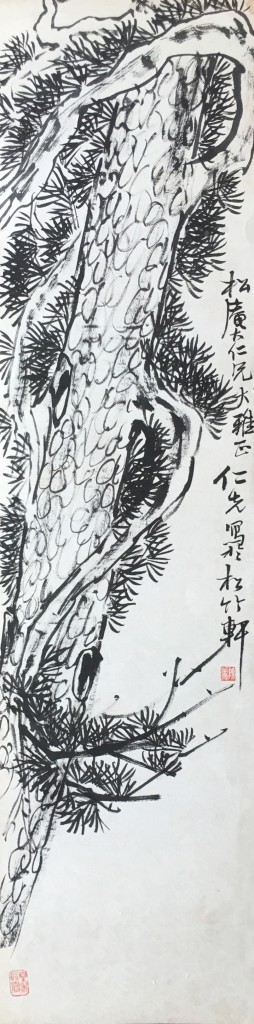 松廣大仁兄大雅正
仁先寫於松竹軒